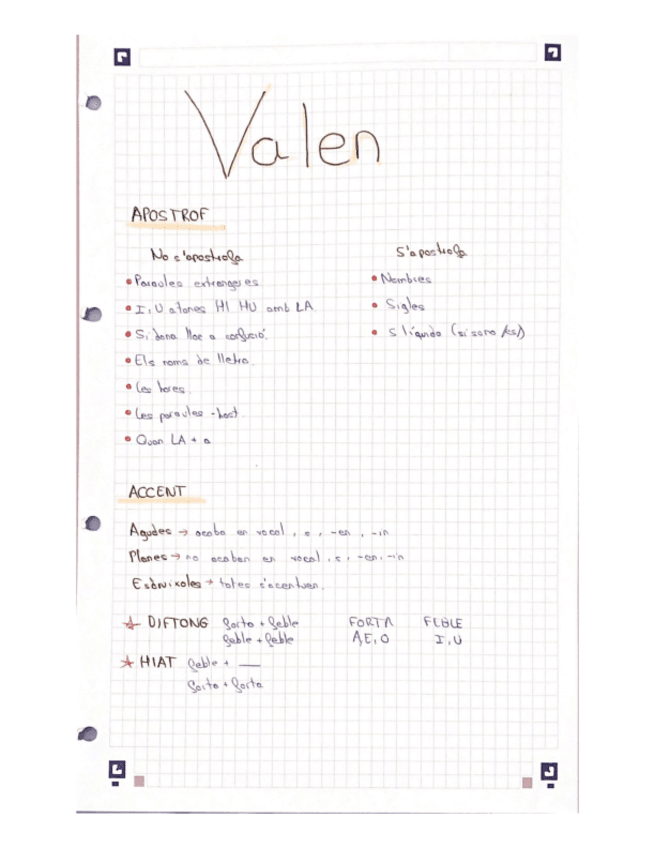 Valen
APOSTROF
No s'apostrofa
• Paraules extrangeres
• I, U àtones HI HU amb LA
• Si dona lloc a confusió.
• Els noms de lletra
• Les hores.
• Les paraules -host.
• Quan LA + a
S'apostrofa
• Nombres
• Sigles
• S líquida (si sona /s/)
ACCENT
Agudes → acaba en vocal, s, -en, -in
Planes → no acaben en vocal, s, -en, -in
Esdrúixoles → totes s'accentuen.
☆ DIFTONG forta + feble
feble + feble
FORTA FEBLE
A, E, O I, U
☆ HIAT feble + __
forta + forta